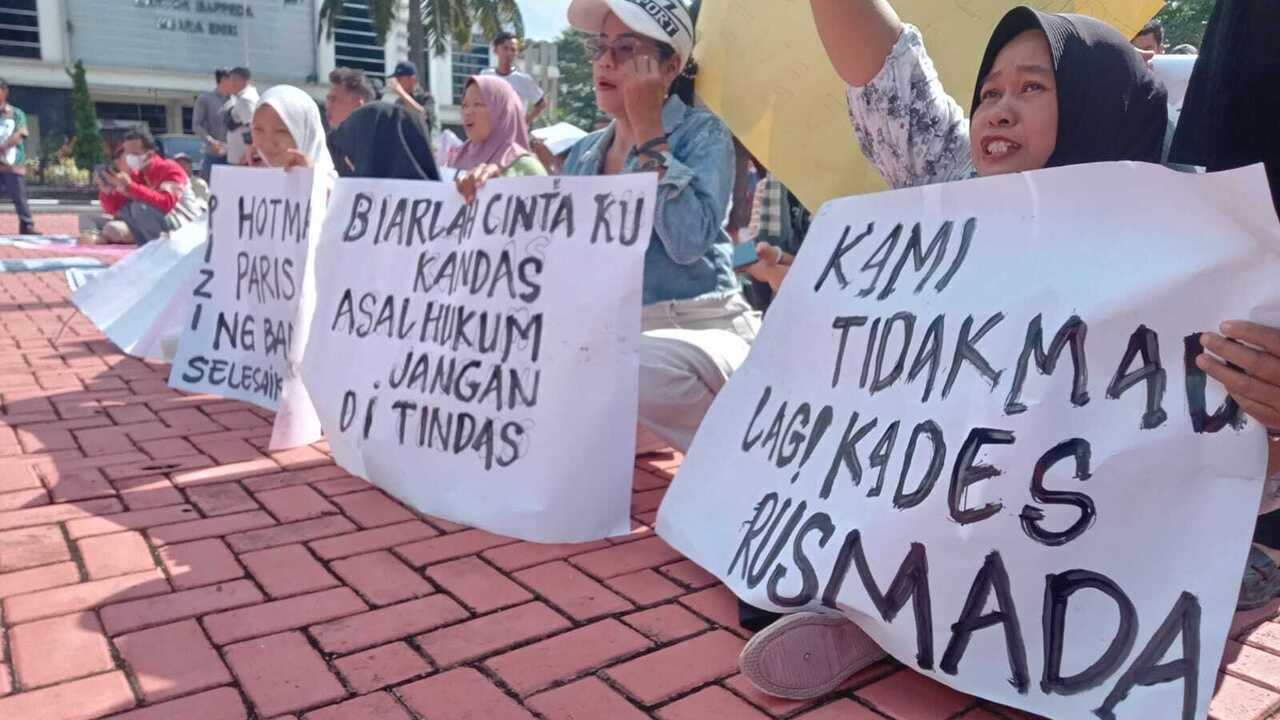 BAPPEDA
HOTMA
PARIS
NG BAN
SELESAIK
BIARLAH CINTA KU
KANDAS
ASAL HUKUM
JANGAN
DI TINDAS
KAMI
TIDAK MAU
LAGI! KADES
RUSMADA